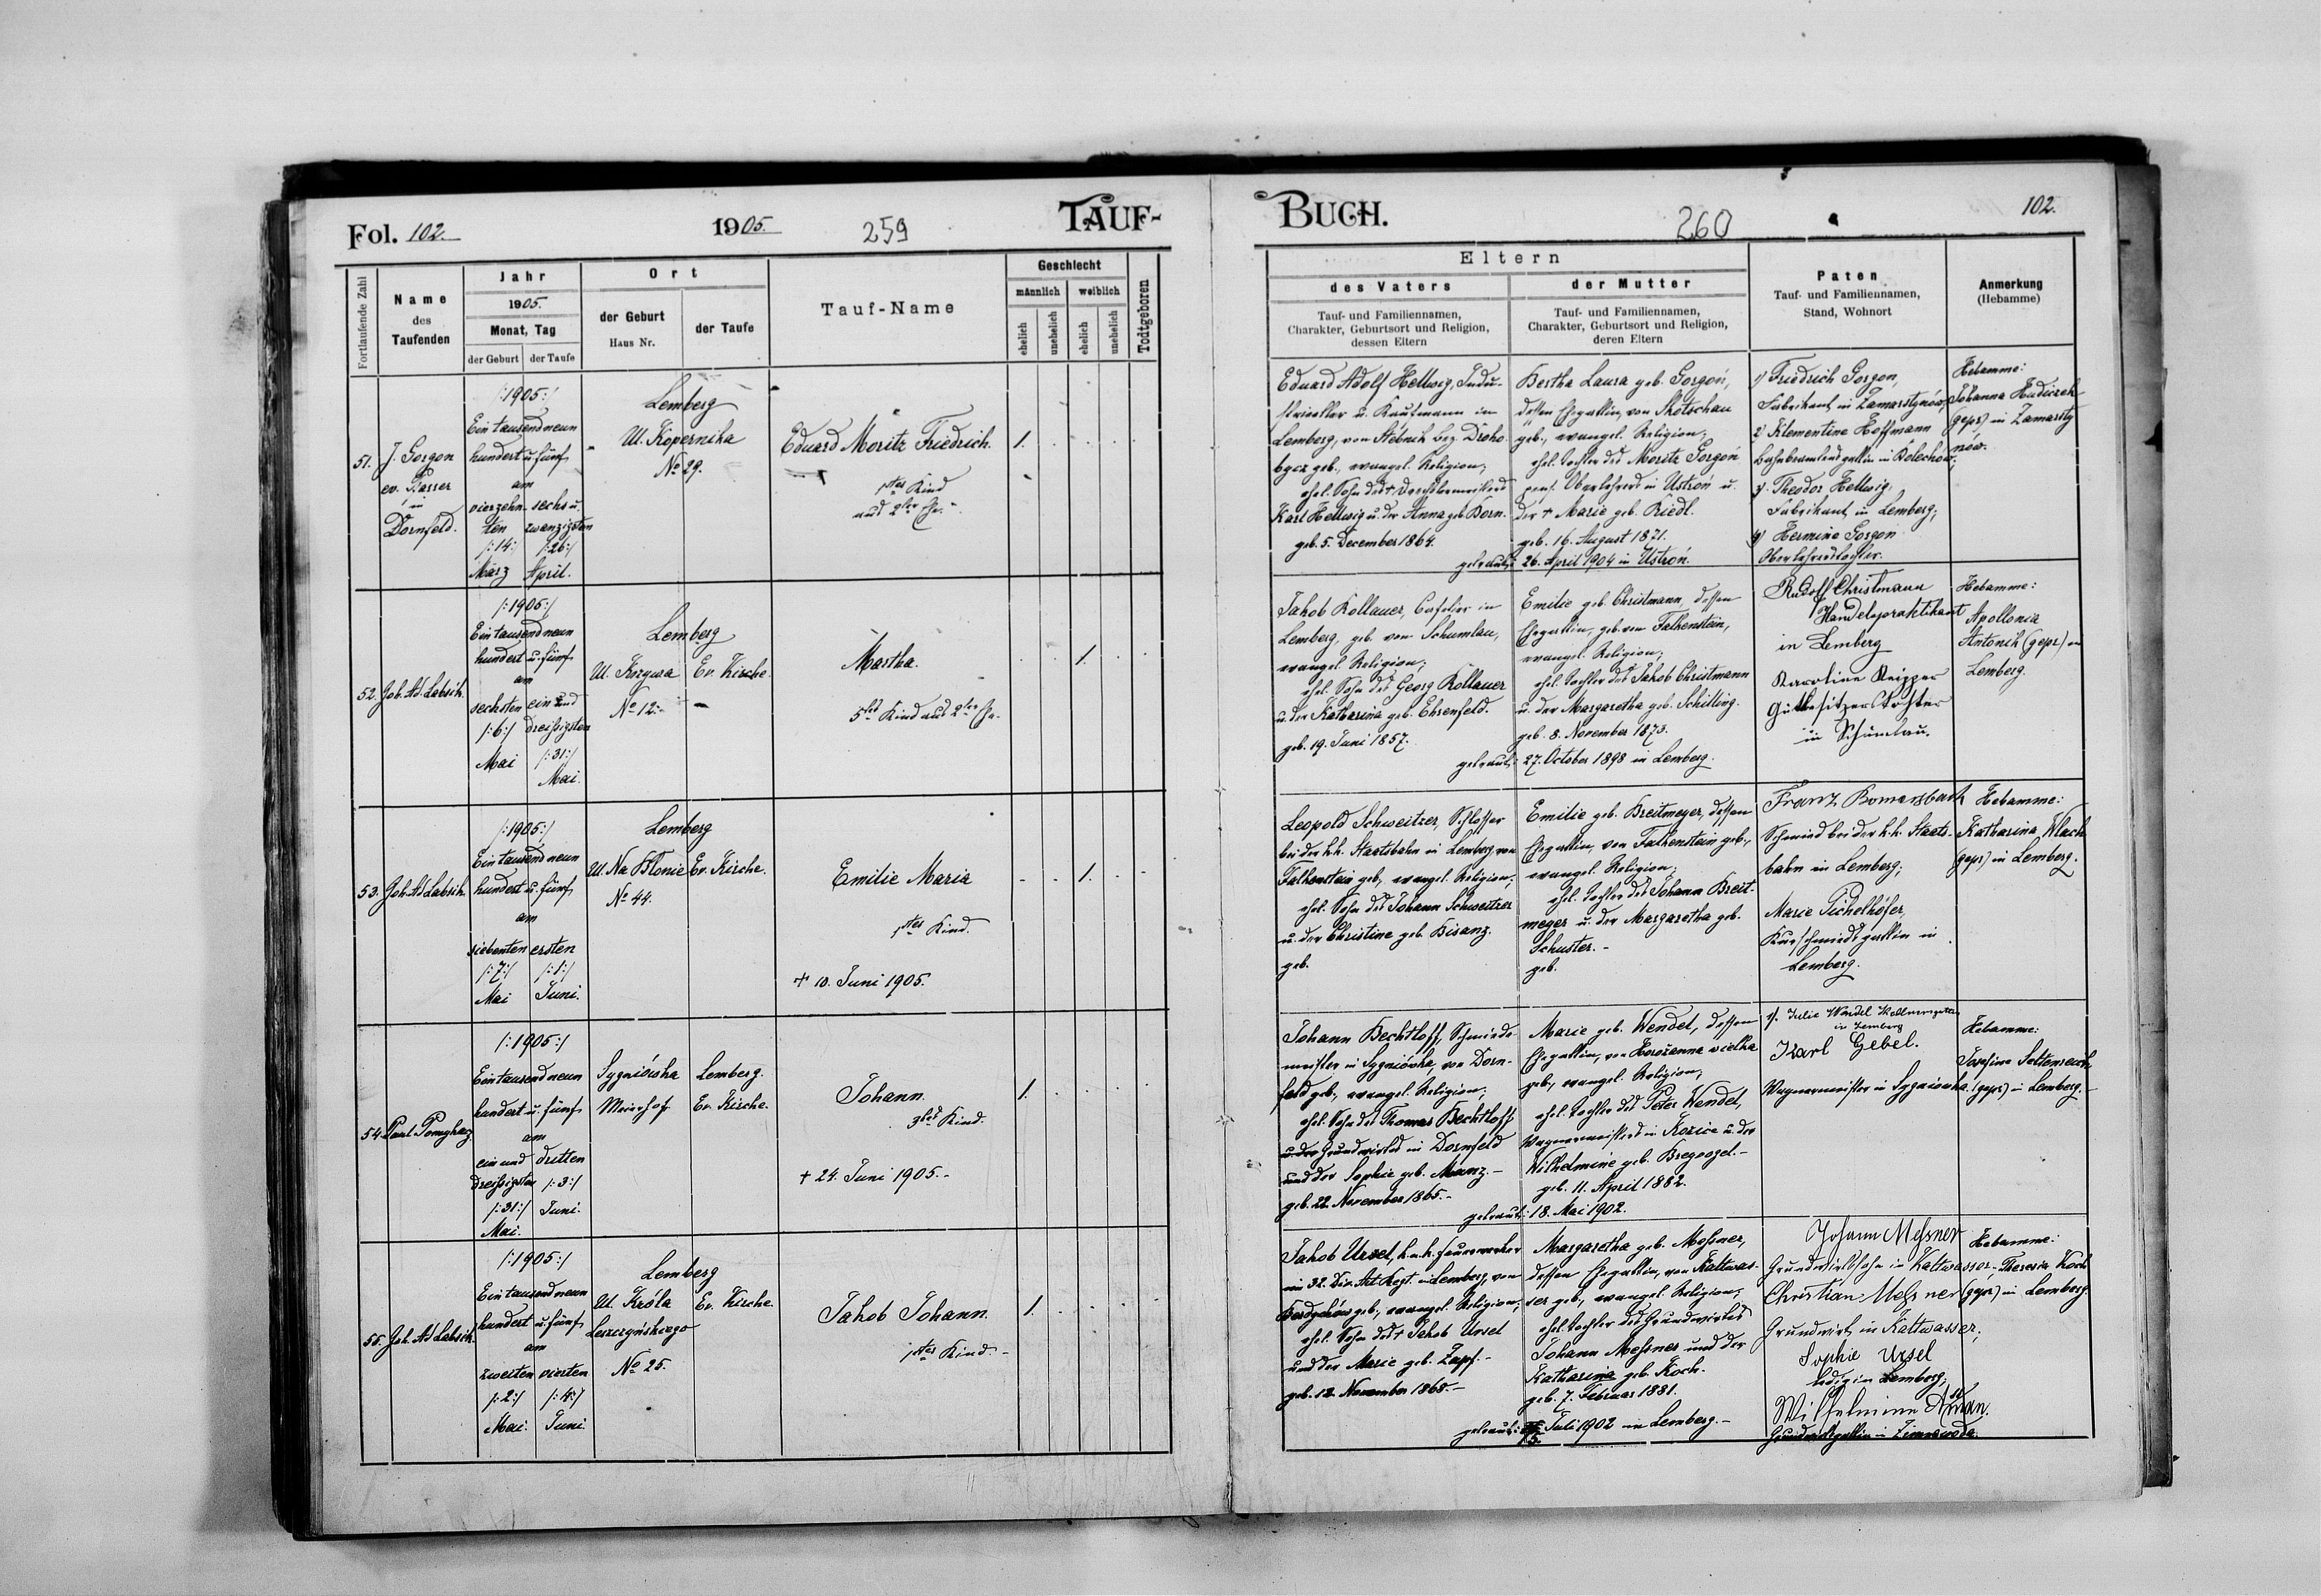 Fol. 102.
1905.
259
TAUF-
Fortlaufende Zahl
Name
des
Taufenden
Jahr
1905.
Monat, Tag
der Geburt
der Taufe
Ort
der Geburt
Haus Nr.
der Taufe
Tauf-Name
Geschlecht
männlich
weiblich
ehelich
unehelich
ehelich
unehelich
Todtgeboren
51.
J. Gorgon
ev. Pfarrer
in
Dornfeld.
/:1905:/
Ein tausend neun
hundert u. fünf
am
vierzehn- sechs u.
ten zwanzigsten
/:14:/ /:26:/
März April.
Lemberg
Ul. Kopernika
No 29.
Eduard Moritz Friedrich.
1tes Kind
aus 2ter Ehe.
1.
52.
Joh. Ad. Labsik.
/:1905:/
Ein tausend neun
hundert u. fünf
am
sechsten ein und
/:6:/ dreißigsten
Mai /:31:/
Mai.
Lemberg
No 12.
Ev. Kirche.
Martha.
5tes Kind aus 2ter Ehe.
1.
53.
Joh. Ad. Labsik.
/:1905:/
Ein tausend neun
hundert u. fünf
am
siebenten ersten
/:7:/ /:1:/
Mai Juni.
Lemberg
Ul. Na Błonie Ev. Kirche.
No 44.
Emilie Maria
1tes Kind.
† 10. Juni 1905.
1.
54.
Paul
/:1905:/
Ein tausend neun
hundert u. fünf
am
ein und dritten
dreißigsten /:3:/
/:31:/ Juni.
Mai.
Sygniówka Lemberg.
Meierhof Ev. Kirche.
Johann.
3tes Kind.
† 24. Juni 1905.-
1.
55.
Joh. Ad. Labsik.
/:1905:/
Ein tausend neun
hundert u. fünf
am
zweiten vierten
/:2:/ /:4:/
Mai. Juni.
Lemberg
Ul. Króla Ev. Kirche.
Leszczyńskiego
No 25.
Jakob Johann.
1tes Kind.-
1.
BUCH.
260
102.
Eltern
des Vaters
Tauf- und Familiennamen,
Charakter, Geburtsort und Religion,
dessen Eltern
der Mutter
Tauf- und Familiennamen,
Charakter, Geburtsort und Religion,
deren Eltern
Paten
Tauf- und Familiennamen,
Stand, Wohnort
Anmerkung
(Hebamme)
Eduard Adolf Hellwig, Indu-
strieller u. Kaufmann in
Lemberg, von Stebnik bez. Droho-
bycz geb., evangel. Religion;
ehel. Sohn des †
Karl Hellwig u. der Anna geb. Born.
geb. 5. December 1864.
Bertha Laura geb. Gorgoń,
dessen Ehegattin, von Skotschau
geb., evangel. Religion;
ehel. Tochter des Moritz Gorgoń
pens. Oberlehrers in Ustroń u.
der † Marie geb. Riedl.
geb. 16. August 1871.
getraut: 26. April 1904 in Ustroń.
1) Friedrich Gorgon,
Fabrikant in Zamarstynów;
2) Klementine Hoffmann
Bahnbeamtensgattin in Bolechów;
3) Theodor Hellwig,
Fabrikant in Lemberg;
4) Hermine Gorgon
Oberlehrerstochter.
Hebamme:
Johanna Hudiczek
(gepr) in Zamarsty-
nów.
Jakob Kollauer, Cafetier in
Lemberg, geb. von Schumlau,
evangel. Religion;
ehel. Sohn des Georg Kollauer
u. der Katharina geb. Ehrenfeld.
geb. 19. Juni 1857.
Emilie geb. Christmann, dessen
Ehegattin, geb. von Falkenstein,
evangel. Religion;
ehel. Tochter des Jakob Christmann
u. der Margaretha geb. Schilling.
geb. 8. November 1873.
getraut: 27. October 1898 in Lemberg.
Rudolf Christmann
Handelspraktikant
in Lemberg
Karoline Kripper
Gutsbesitzerstochter
in Schumlau.
Hebamme:
Apollonia
Antonik (gepr) in
Lemberg.
Leopold Schweitzer, Schlosser
bei der k.k. Staatsbahn in Lemberg, von
Falkenstein geb., evangel. Religion;
ehel. Sohn des Johann Schweitzer
u. der Christine geb. Bisanz.
geb.
Emilie geb. Breitmeyer, dessen
Ehegattin, von Falkenstein geb.,
evangel. Religion;
ehel. Tochter des Johann Breit-
meyer u. der Margaretha geb.
Schuster.-
geb.
Franz Bomersbach
Schmied bei der k.k. Staats-
bahn in Lemberg;
Marie Pichelhöfer,
Kurschmiedsgattin in
Lemberg.
Hebamme:
Katharina Wlach
(gepr) in Lemberg.
Johann Bechtloff, Schmiede-
meister in Sygniówka, von Dorn-
feld geb., evangel. Religion;
ehel. Sohn des Thomas Bechtloff
Grundwirtes in Dornfeld
und der Sophie geb. Manz.-
geb. 22. November 1865.-
Marie geb. Wendel, dessen
Ehegattin, von Horożanna wielka
geb., evangel. Religion;
ehel. Tochter des Peter Wendel,
Wagnermeisters in Kozice u. der
Wilhelmine geb. Bregoozel.-
geb. 11. April 1882.
getraut: 18. Mai 1902.
1). Julie Wendel Kellnersgattin
in Lemberg
Karl Gebel.
Wagnermeister in Sygniówka.
Hebamme:
Josefine
(gepr) in Lemberg.-
Jakob Ursel, k.u.k. Feuerwerker
im 32. Div. Art. Regt. in Lemberg, von
geb., evangel. Religion;
ehel. Sohn des † Jakob Ursel
und der Marie geb. Zapf.-
geb. 12. November 1868.-
Margaretha geb. Meßner,
dessen Ehegattin, von Kaltwas-
ser geb., evangel. Religion;
ehel. Tochter des Grundwirtes
Johann Meßner und der
Katharina geb. Koch.
geb. 7. Februar 1881.
getraut: 15. Juli 1902 in Lemberg.-
Johann Messner
Grundwirtssohn in Kaltwasser,-
Christian Messner
Grundwirt in Kaltwasser;
Sophie Ursel
ledig in Lemberg;
Wilhelmine
Grundwirtsgattin in Zimnawoda.
Hebamme:
Theresia Koch
(gepr) in Lemberg.